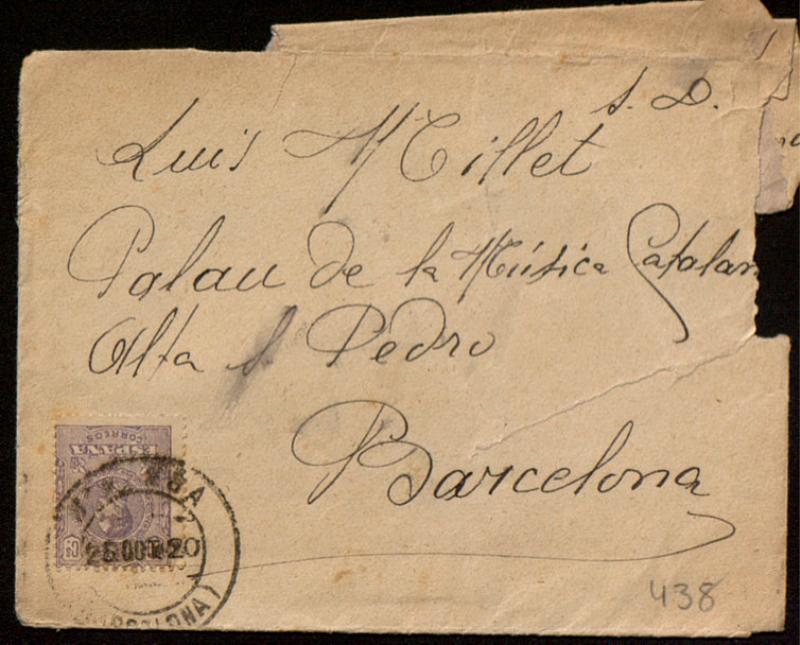 S. D.
Luis Millet
Palau de la Música Catalan
Alta S. Pedro
Barcelona
CORREOS
ESPAÑA
20
25 OCT 20
(BARCELONA)
438